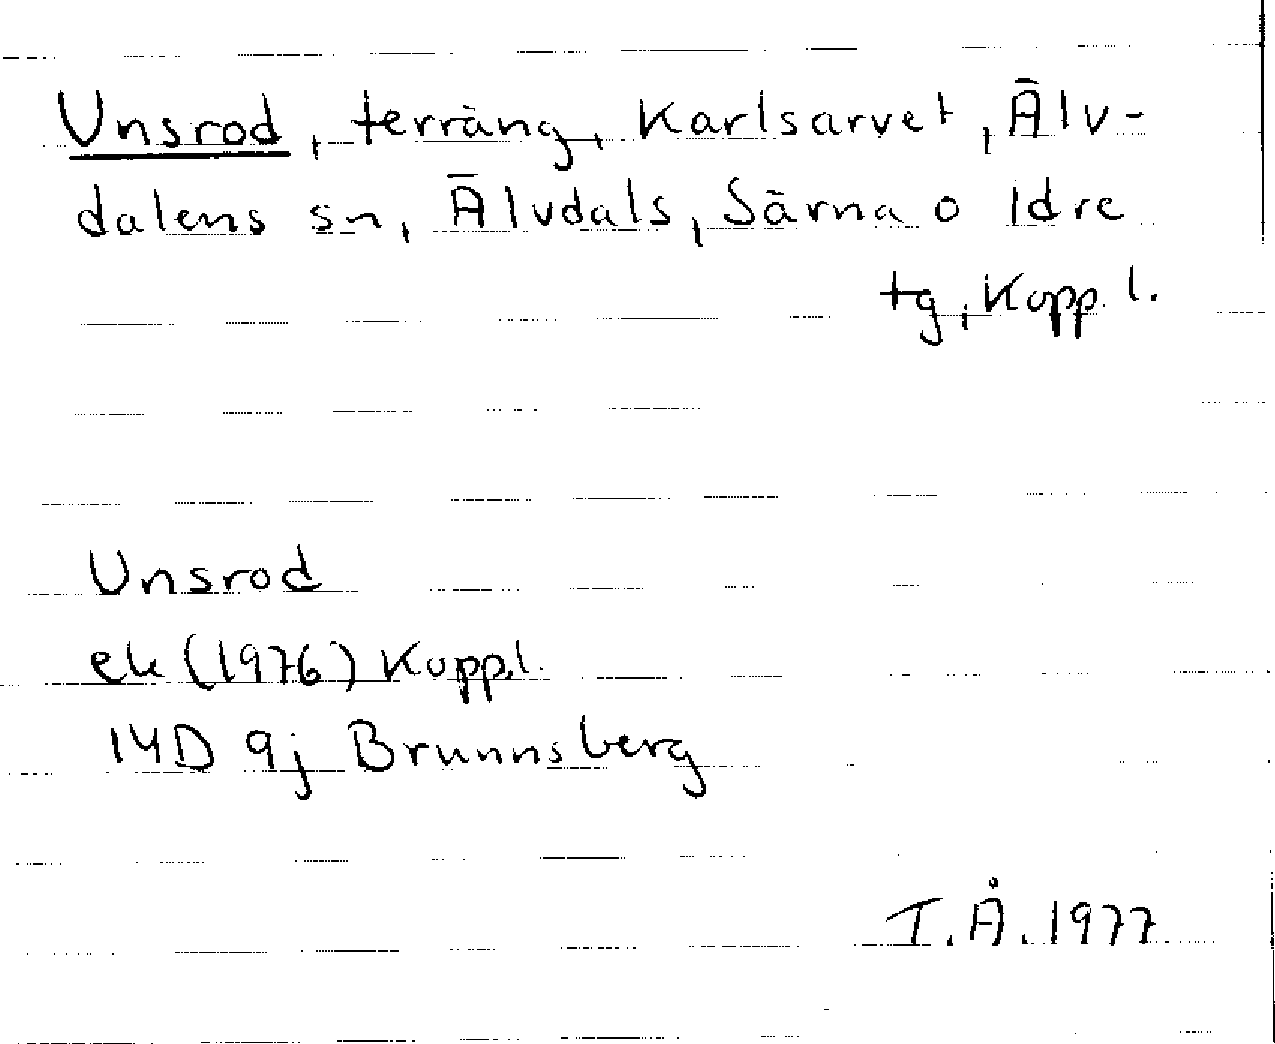 Unsrod, terräng, Karlsarvet, Älv-
dalens sn, Älvdals, Särna o Idre
tg, Kopp. l.
Unsrod
ek (1976) Kopp.l.
14D 9j Brunnsberg
T.Å. 1977